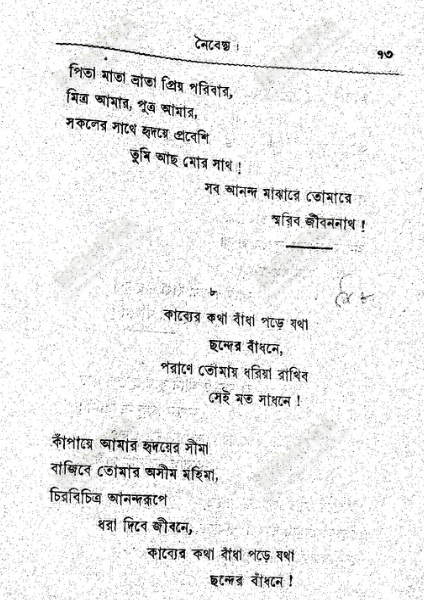 নৈবেদ্য।
১৩
পিতা মাতা ভ্রাতা প্রিয় পরিবার,
মিত্র আমার, পুত্র আমার,
সকলের সাথে হৃদয়ে প্রবেশি
তুমি আছ মোর সাথ!
সব আনন্দ মাঝারে তোমারে
স্মরিব জীবননাথ!
৮
কাব্যের কথা বাঁধা পড়ে যথা
ছন্দের বাঁধনে,
পরাণে তোমায় ধরিয়া রাখিব
সেই মত সাধনে!
কাঁপায়ে আমার হৃদয়ের সীমা
বাজিবে তোমার অসীম মহিমা,
চিরবিচিত্র আনন্দরূপে
ধরা দিবে জীবনে,
কাব্যের কথা বাঁধা পড়ে যথা
ছন্দের বাঁধনে!